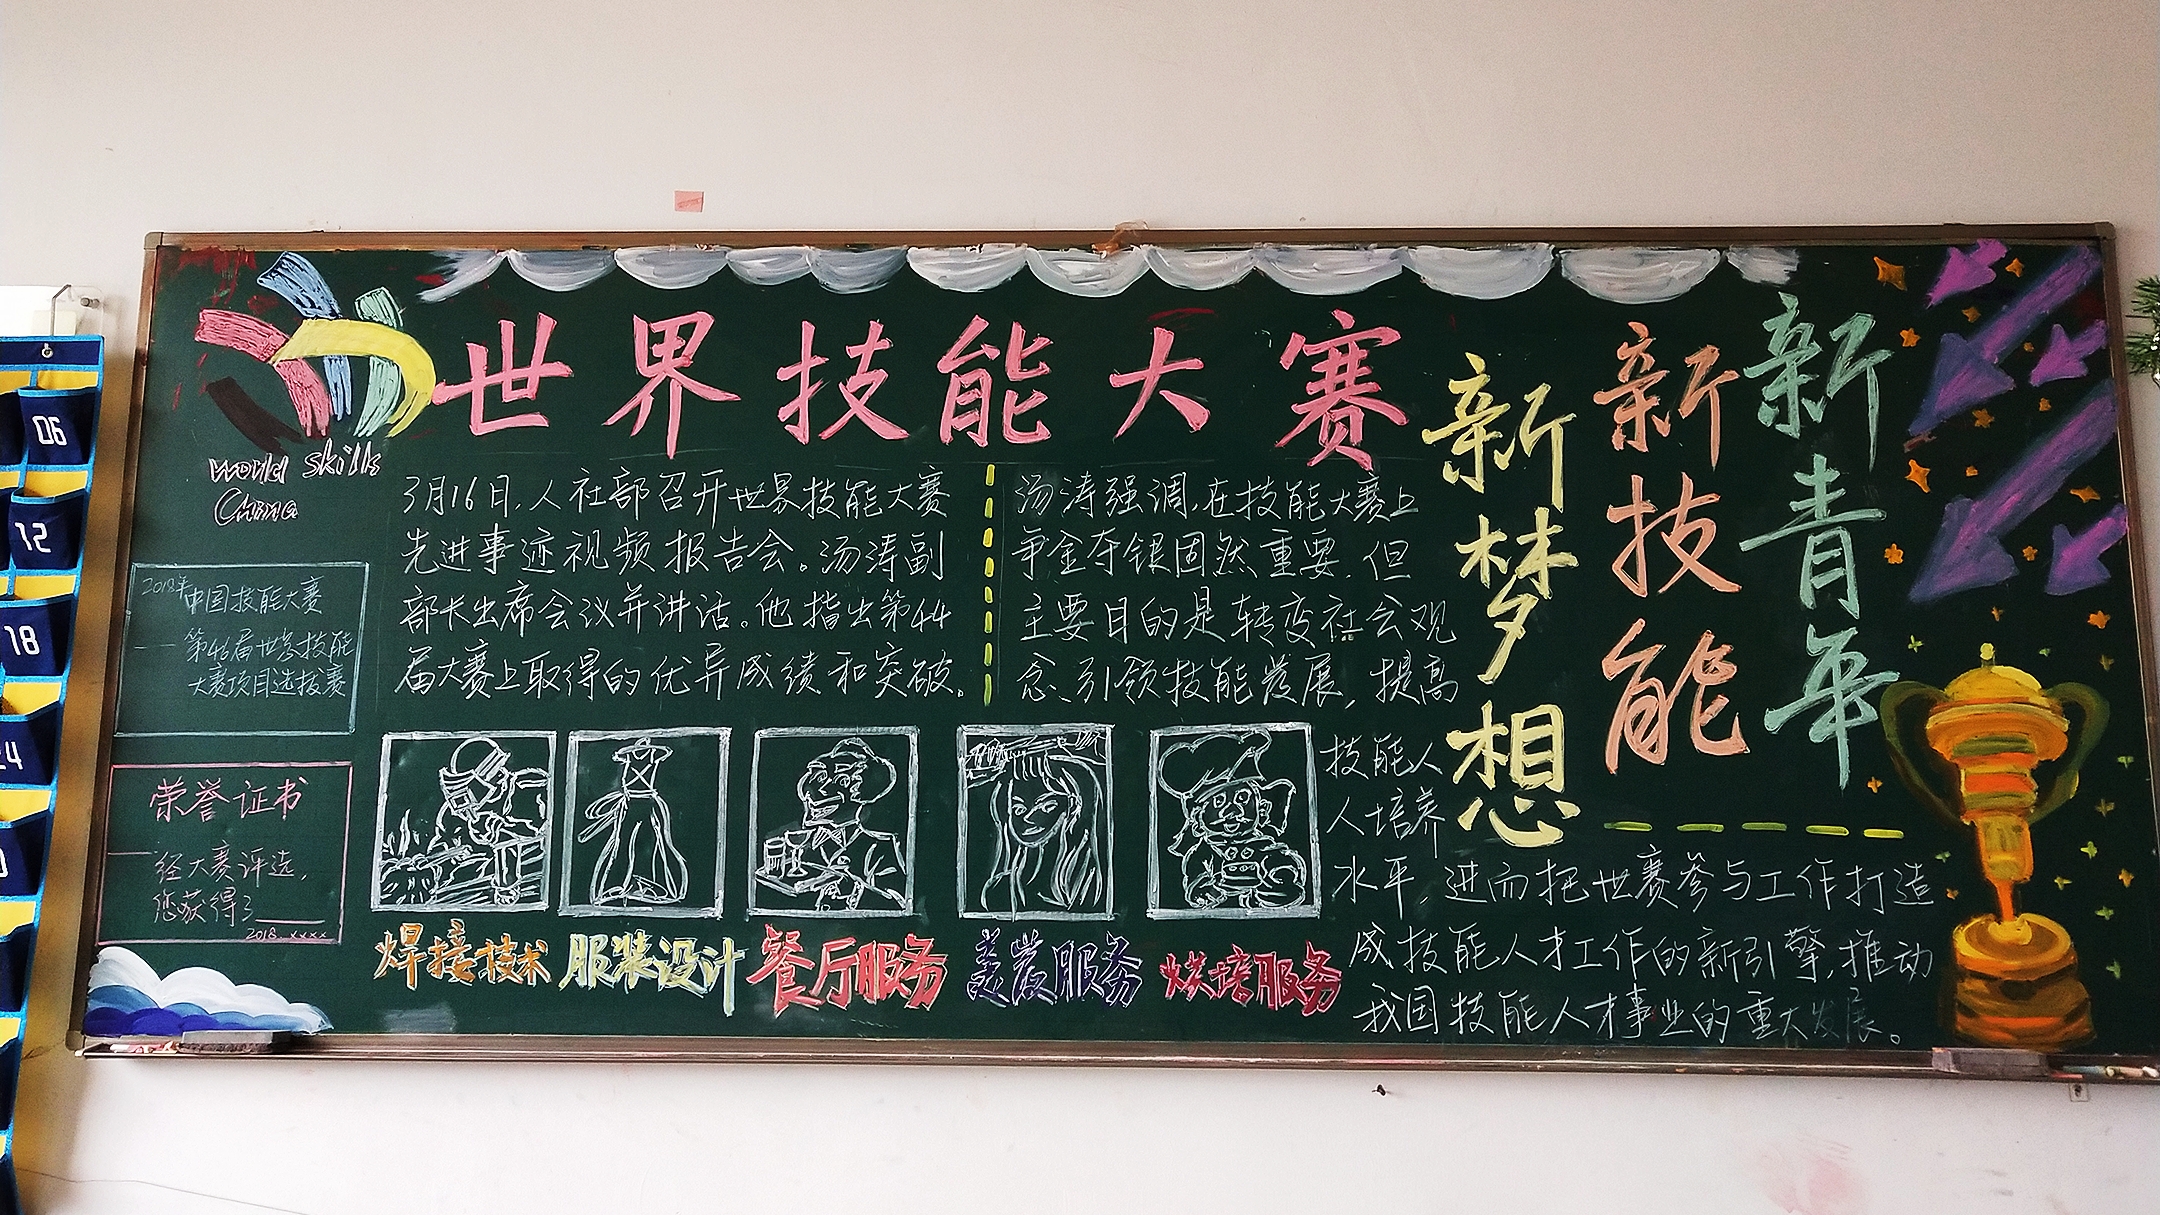 世界技能大赛
World Skills
China
新青年
新技能
新梦想
3月16日,人社部召开世界技能大赛
先进事迹视频报告会。汤涛副
部长出席会议并讲话。他指出第44
届大赛上取得的优异成绩和突破。
汤涛强调,在技能大赛上
争金夺银固然重要,但
主要目的是转变社会观
念、引领技能发展,提高
技能人
人培养
水平,进而把世赛参与工作打造
成技能人才工作的新引擎,推动
我国技能人才事业的重大发展。
2018年中国技能大赛
——第46届世界技能
大赛项目选拔赛
荣誉证书
经大赛评选,
您获得了
2018.xxxx
焊接技术
服装设计
餐厅服务
美发服务
烘培服务
06
12
18
24